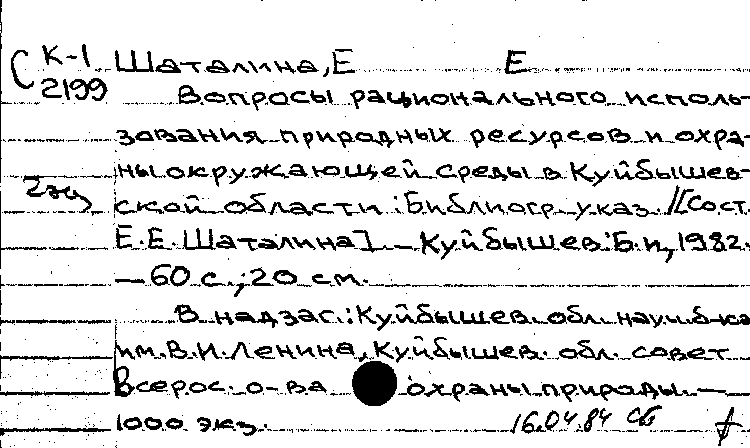 С К-1 Шаталина, Е Е
2199 Вопросы рационального исполь-
зования природных ресурсов и охра-
ны окружающей среды в Куйбышев-
2 экз ской области : Библиогр. указ. /[Сост.
Е.Е. Шаталина]. – Куйбышев : Б.и, 1982.
– 60 с.; 20 см.
В надзаг.: Куйбышев. обл. науч. б-ка
им. В.И. Ленина, Куйбышев. обл. совет
Всерос. о-ва охраны природы. –
1000 экз. 16.04.84